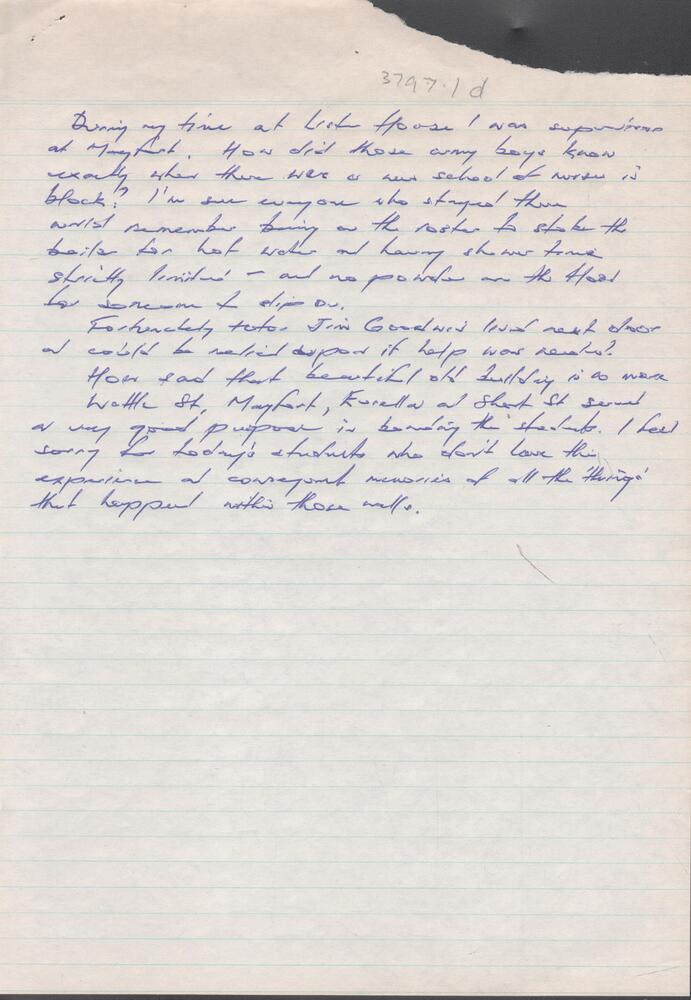 3797.1 d
During my time at Lister House I was supervisor
at Mayfort. How did those army boys know
exactly when there was a new school of nurses in
block? I'm sure everyone who stayed there
would remember being on the roster to stoke the
boiler for hot water and having shower time
strictly limited - and no powder on the floor
for someone to slip on.
Fortunately tutor Jim Goodwin lived next door
and could be relied upon if help was needed.
How sad that beautiful old building is no more
Wattle St, Mayfort, and Short St served
a very good purpose in bonding the students. I feel
sorry for today's students who don't have this
experience and consequent memories of all the 'things'
that happened within those walls.